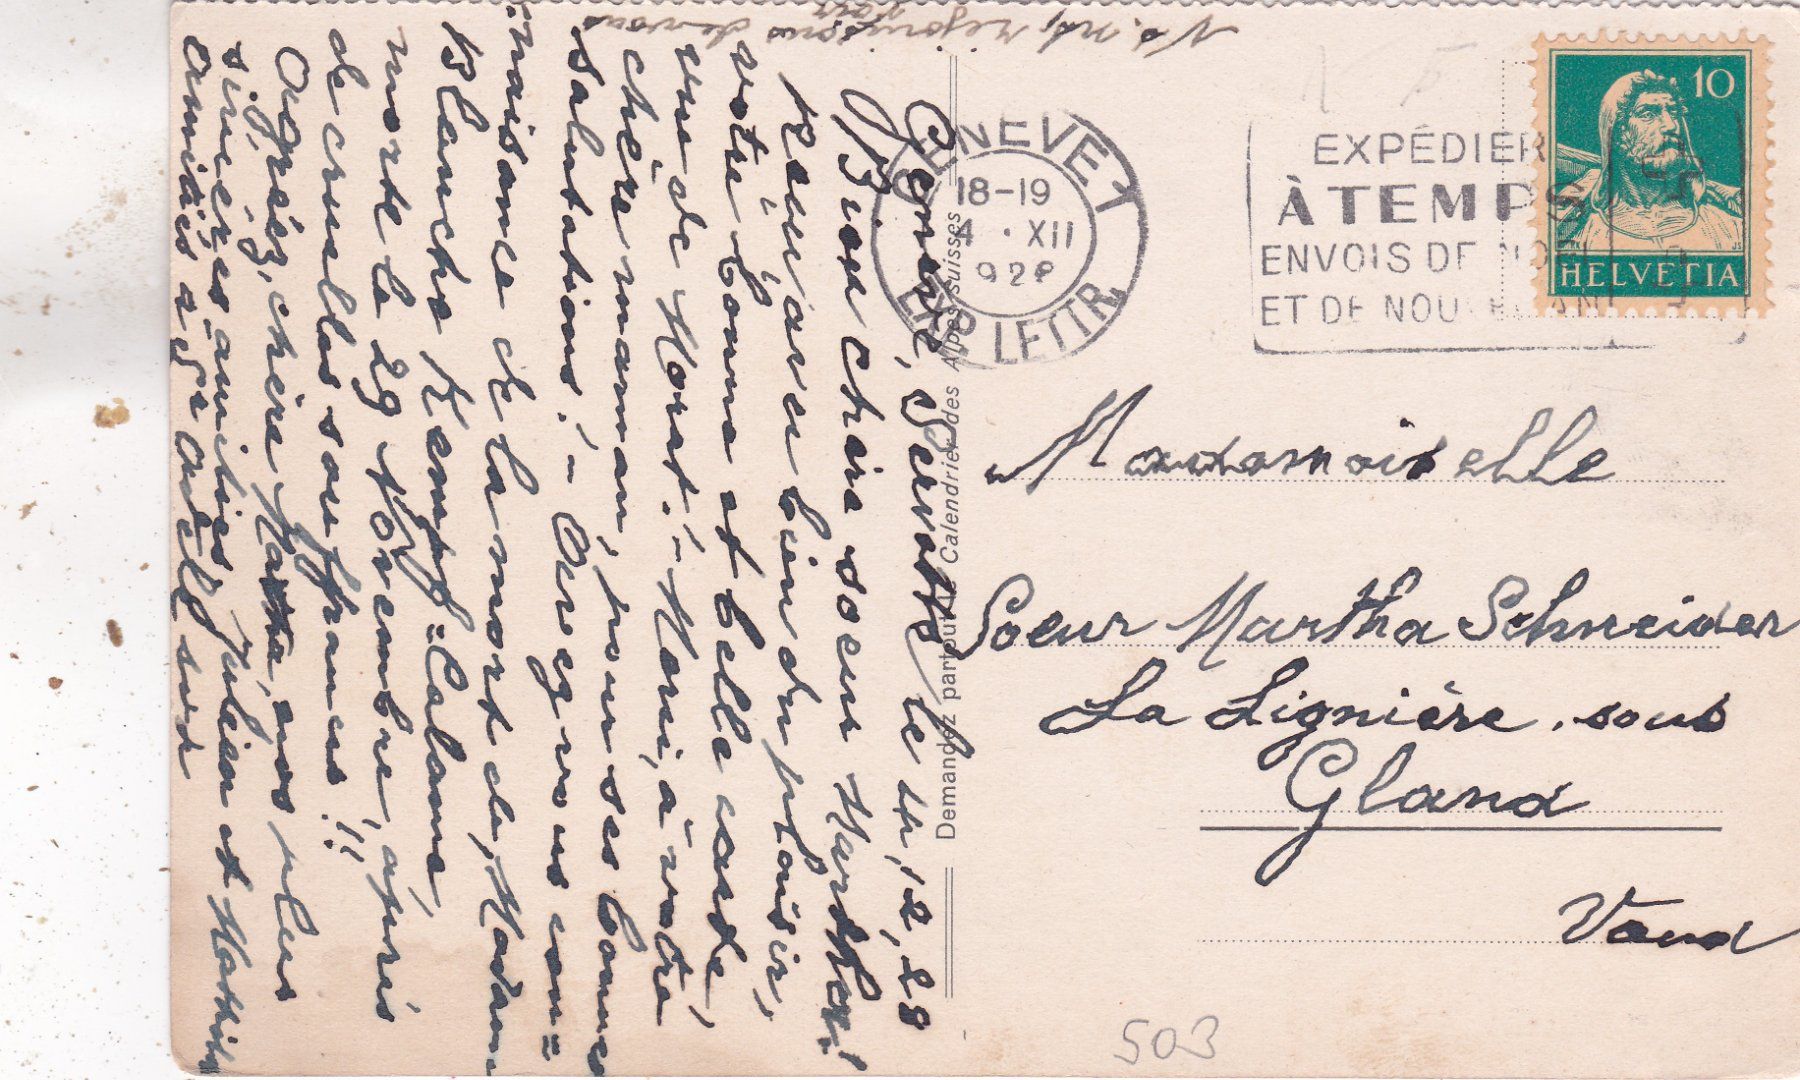 Genève, Servette le 4,12,28
Bien chère soeur Martha!
Reçu avec bien du plaisir,
votre bonne et belle carte,
vue de Morat.- Merci, à votre
chère maman, pour ses bonnes
salutations.- Avez vous con=
naisance de la mort de, Madam
Blanche Kempf=Calame,
morte le 29 Novembre, après
de cruelles souffrances!!
Agréez, chère Martha, nos plus
sincères amitiés Julien et
Amitiés à Sr
Demandez partout le Calendrier des Alpes suisses
GENÈVE 1
18-19
4 · XII
1928
EXP. LETTR.
EXPÉDIER
À TEMPS
ENVOIS DE NOËL
ET DE NOUVEL AN
10
HELVETIA
Mademoiselle
Soeur Martha Schneider
La Lignière. sous
Gland
Vaud
503